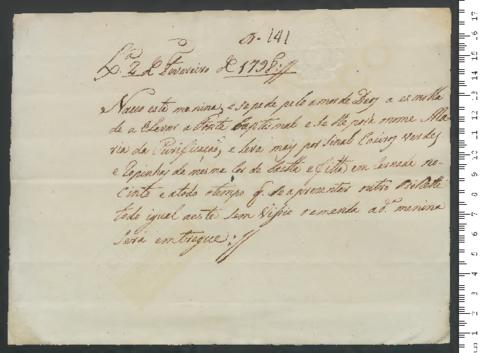 N. 141
Lxa. 2 de Fevereiro de 1798
Nasceo esta menina, e se pede pelo amor de Deos a esmolla
de a Levar a Fonte Baptismal e se lhe porá nome Ma
ria da Purificação, e leva mais por Sinal Coeiros verdes
e Roupinha da mesma Cor de
e a todo o tempo q. se aprezentar outro Bilhete
todo igual a este sem vicio nem emenda a d.a menina
Será entregue